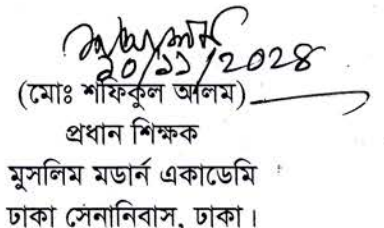 ২০/১১/2028
(মোঃ শফিকুল আলম)
প্রধান শিক্ষক
মুসলিম মডার্ন একাডেমি
ঢাকা সেনানিবাস, ঢাকা।